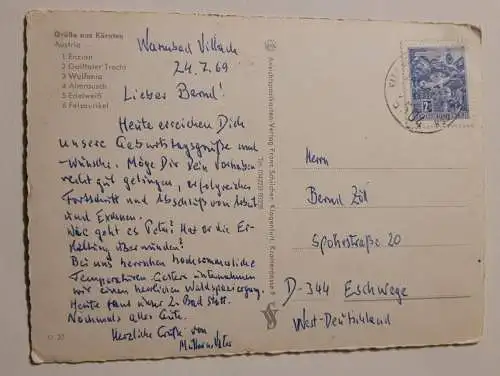 Grüße aus Kärnten
Austria
1 Enzian
2 Gailtaler Tracht
3 Wulfenia
4 Almrausch
5 Edelweiß
6 Felsaurikel
Warmbad Villach
24.7.69
Lieber Bernd!
Heute erreichen Dich
unsere Geburtstagsgrüße und
-wünsche. Möge Dir Dein Vorhaben
recht gut gelingen, erfolgreicher
Fortschritt und Abschluß von Arbeit
und Examen.
Wie geht es Peter? Hat er die Er-
kältung überwunden?
Bei uns herrschen hochsommerliche
Temperaturen. Gestern unternahmen
wir einen herrlichen Waldspaziergang.
Heute fand unser 2. Bad statt.
Nochmals alles Gute.
Herzliche Grüße von
Mutter u. Vater
Ansichtskarten-Verlag Franz Schilcher, Klagenfurt, Kranzmayerstraße
Herrn
Bernd Zöl
Spohrstraße 20
D-344 Eschwege
West-Deutschland